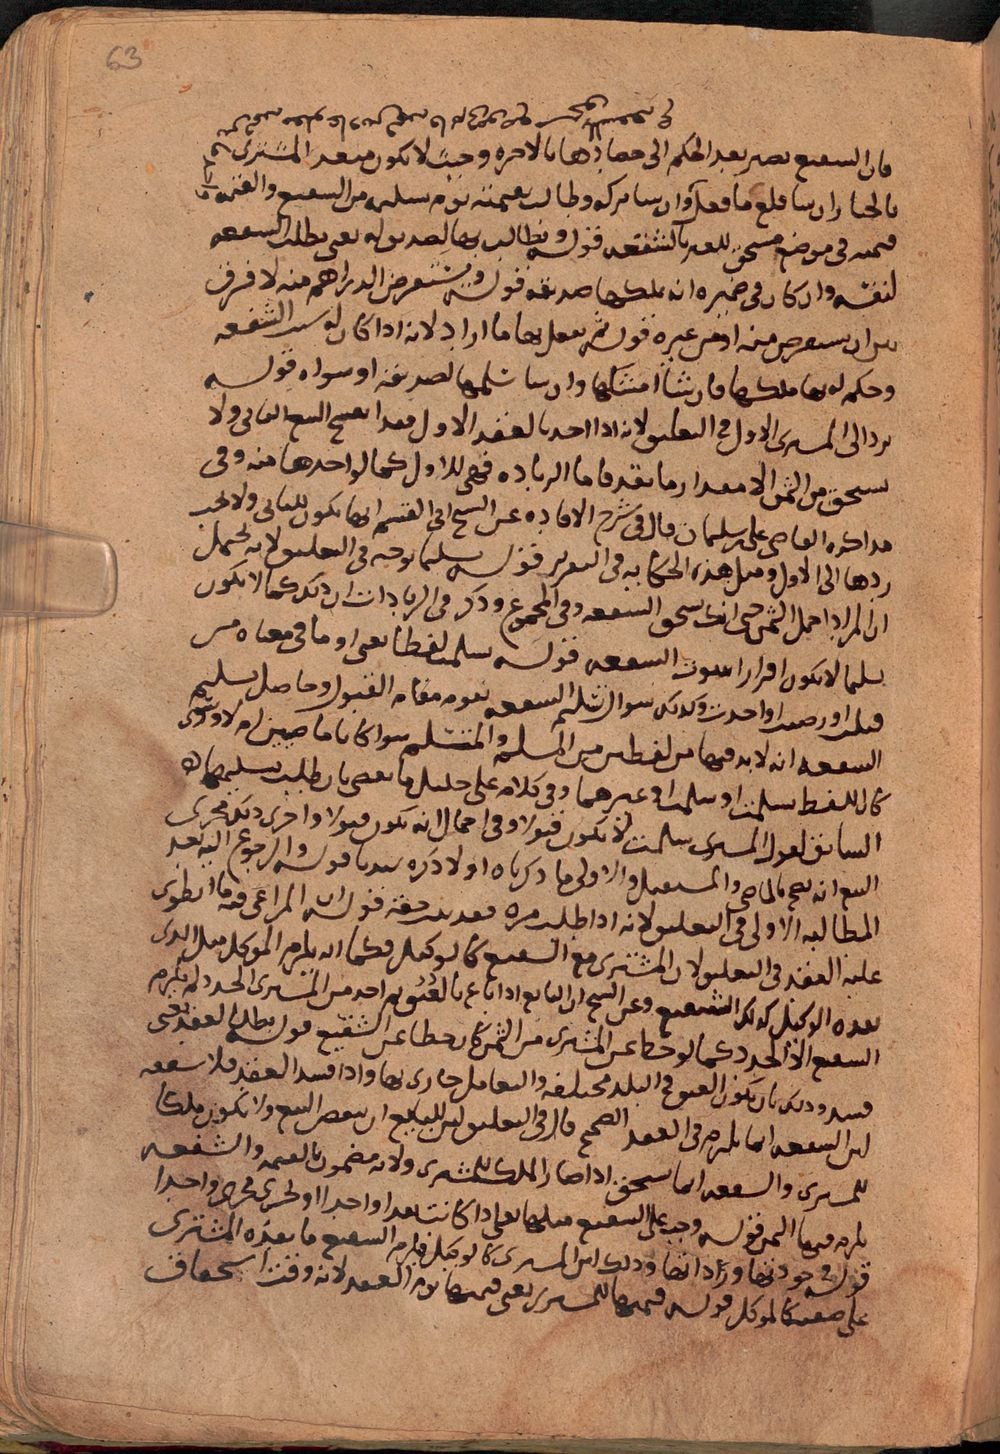 63
فان الشفيع يصير بعد الحكم الى حصادها بالاجره وحيث لا يكون فيعد المشترى
بالخيار ان شا قلع ما فعل وان شا تركه وطالب بقيمته يوم من الشفيع والقيمه
قيمته فى موضع مستحق للعين بالشفعه قوله ويطالب بها لصديق له يعنى يطلب الشفعه
لنفسه وان كان فى ضميره انه يملكها صديقه قوله ويستقرض الدراهم منه لا فرق
بين ان يستقرض منه او من غيره قوله ثم يفعل بها ما اراد لانه اذا كان له سبب الشفعه
وحكم له بها ملكها فان شا امسكها وان شا سلمها لصديقه او سواه قوله
يرد الى المشترى الاول فى التعليق لانه اذا اخذ بالعقد الاول فقد انفسخ البيع الثانى ولا
يستحق من الثمن الا مقدار ما نقد فاما الزياده فهى للاول كما لو اخذها منه وفى
مذاكره القاضى على سليمان قال فى شرح الافاده عن الشيخ ابى القسم انها تكون للثانى ولا يجب
ردها الى الاول ومثل هذه الحكايه فى التقرير قوله تسليما توجه فى التعليق لانه يحتمل
ان المراد احمل الثمن حتى انك تستحق الشفعه وفى المجموع وذكر فى الزيادات ان ذلك كما لا يكون
تسليما لا يكون اقرارا بثبوت الشفعه قوله سلمت لفظا يعنى او ما فى معناه من
قبلت او رضيت او اخذت وكذلك سوال تسليم الشفعه يقوم مقام القبول وحاصل تسليم
الشفعه انه لا بد فيها من لفظين من المسلم والمتسلم سوا كانا ماضيين ام لا وسوى
كان اللفظ تسلمت او سلمت او غيرهما وفى كلام على خليل ما يقضى بان طلب تسليمها
السابق لقول المشترى سلمت لا يكون قبولا وفى احتمال انه يكون قبولا واجرى ذلك مجرى
البيع انه يصح بالماضى والمستقبل والاولى ما ذكرناه اولا ذكره سيدنا قوله والرجوع اليه بعد
المطالبه الاولى فى التعليق لانه اذا طلب مره فقد ثبت حقه قوله ان المراعى فيه ما انطوى
عليه العقد فى التعليق لان المشترى مع الشفيع كالوكيل فكما انه يلزم الموكل مثل الذى
نقده الوكيل كذلك الشفيع وعن الشيخ ان البايع اذا باع بالعتق ثم اخذ من المشترى الجدد لم يلزم
الشفيع الا الجدد كما لو حط عن المشترى من الثمن كان حطا عن الشفيع قوله بطل العقد يعنى
فسد وذلك بان يكون العتق فى البلد مختلفه والتعامل جارى بها واذا فسد العقد فلا شفعه
لان الشفعه انما تلزم فى العقد الصحيح قال فى التعليق لان للبايع ان ينقض البيع ولا يكون ملكا
للمشترى والشفعه انما تستحق اذا صار الملك للمشترى ولانه مضمون بالقيمه والشفعه
يلزم فيها الثمن قوله وجب على الشفيع مثلها يعنى اذا كانت نقدا واحدا او تجرى مجرى واحدا
قوله فى جودتها ورداتها وذلك لان المشترى كالوكيل فيلزم الشفيع ما نقده المشترى
على صفته كالموكل قوله قيمتها للمشترى يعنى قيمتها يوم العقد لانه وقت استحقاق